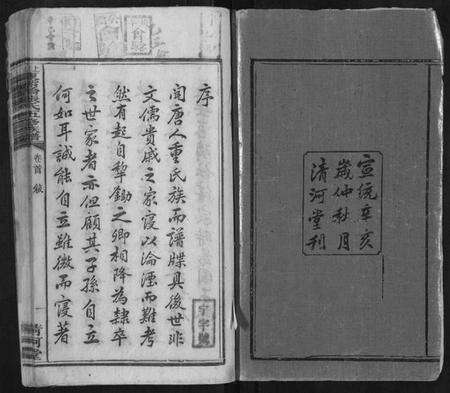 宣統辛亥
歲仲秋月
清河堂刊
序
閥唐人重氏族而譜牒具後世非
文儒貴戚之家寖以淪湮而難考
然有起自犂鋤之卿相降為隸卒
之世家者亦但願其子孫自立
何如耳誠能自立雖微而寖著
卷首 敍
清河堂
字號